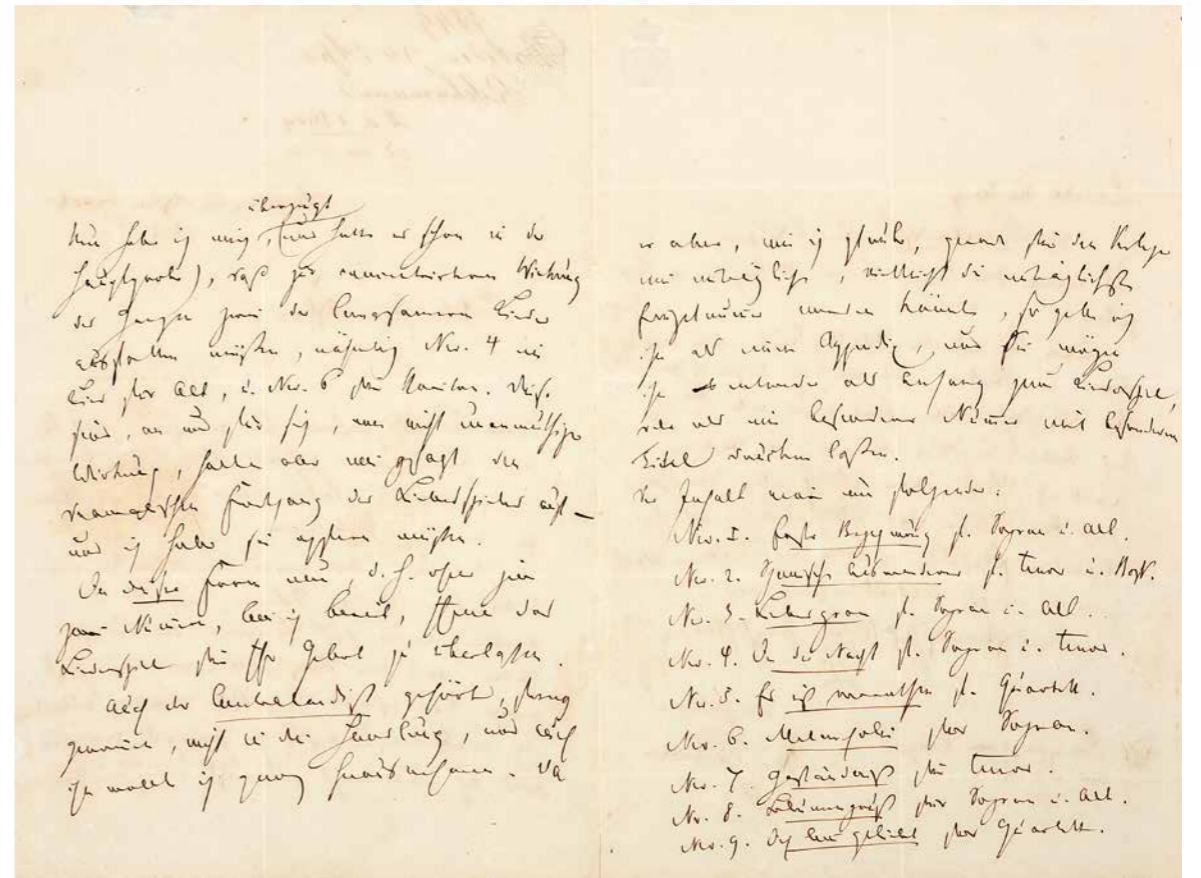 überzeugt
Nun habe ich mich, (und hatte es schon in der
Hauptprobe), daß zur concentrirteren Wirkung
des Ganzen zwei der langsameren Lieder
ausfallen müßten, nähmlich Nro. 4 ein
Lied für Alt, u. Nro. 6 für Bariton. Diese
sind, an und für sich, von nicht unanmuthiger
Wirkung, halten aber wie gesagt den
dramatischen Fortgang des Liederspieles auf –
und ich habe sie opfern müssen.
In dieser Form nun, d. h. ohne jene
zwei Nummern, bin ich bereit, Ihnen das
Liederspiel für Ihr Gebot zu überlassen.
Auch der Contrabandist gehört, streng
genommen, nicht in die Handlung, und auch
ihn wollt ich ganz herausnehmen. Da
er aber, wie ich glaube, gerade für den Verleger
eine einträgliche, vielleicht die einträglichste
Einzelnummer werden könnte, so gebe ich
ihn als einen Appendix, und Sie mögen
ihn entweder als Anhang zum Liederspiel,
oder als eine besondere Nummer mit besonderem
Titel drucken lassen.
Der Inhalt wäre nun folgender:
Nro. 1. Erste Begegnung f. Sopran u. Alt.
Nro. 2. Intermezzo f. Tenor u. Baß.
Nro. 3. Liebesgram f. Sopran u. Alt.
Nro. 4. In der Nacht f. Sopran u. Tenor.
Nro. 5. Es ist verrathen f. Quartett.
Nro. 6. Melancholie für Sopran.
Nro. 7. Geständniß für Tenor.
Nro. 8. Botschaft für Sopran u. Alt.
Nro. 9. Ich bin geliebt für Quartett.